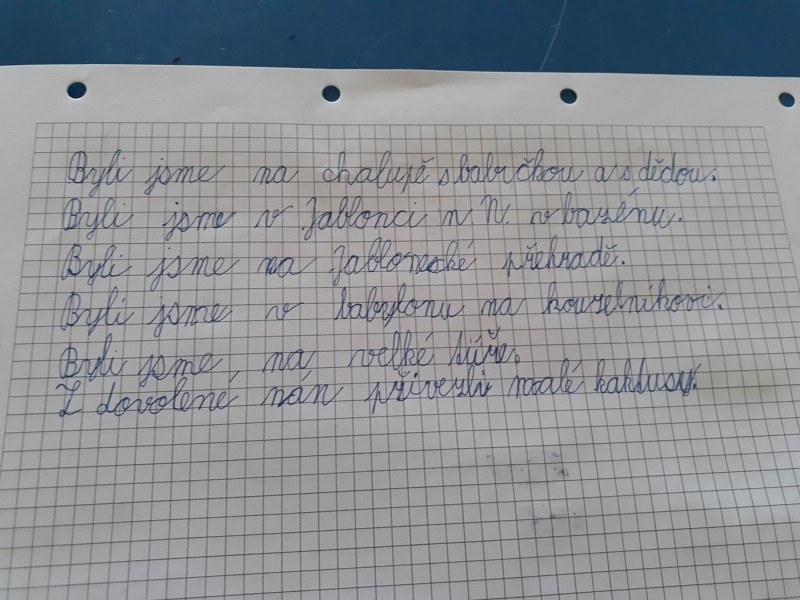 Byli jsme na chalupě s babičkou a s dědou.
Byli jsme v Jablonci n N. v bazénu.
Byli jsme na Jablonecké přehradě.
Byli jsme v babylonu na kouzelníkovi.
Byli jsme na velké túře.
Z dovolené nán přivezli malé kaktusy.